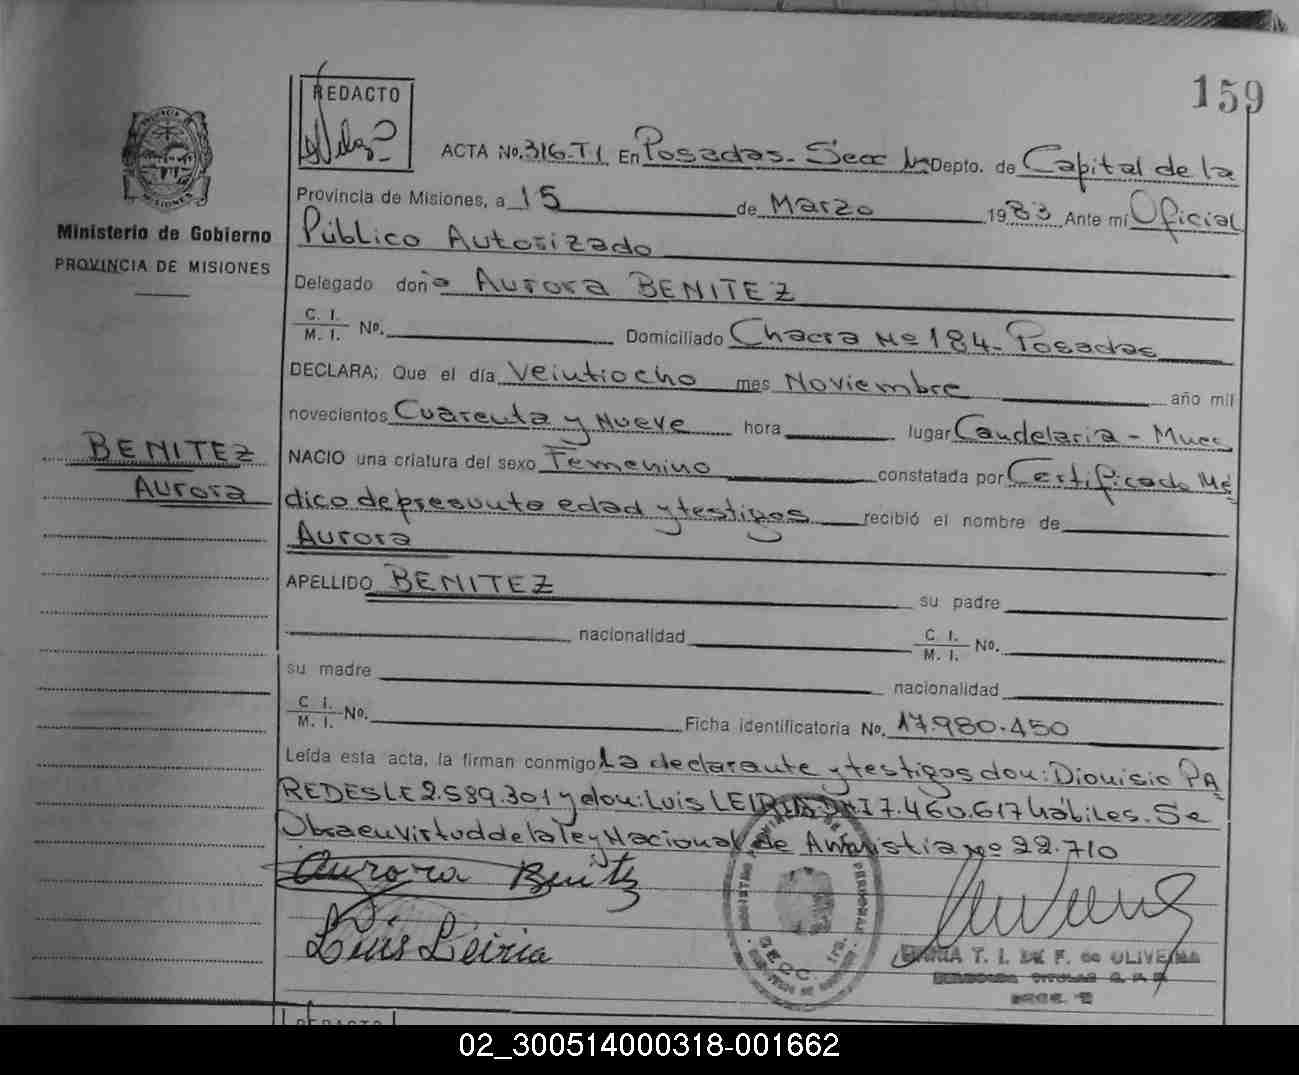 159
REDACTO
ACTA No. 316-T1 En Posadas- Secc 1a Depto. de Capital de la
Provincia de Misiones, a 15 de Marzo 1983 Ante mí Oficial
Público Autorizado
Delegado doña Aurora BENITEZ
C. I.
M. I. No. Domiciliado Chacra Nº 184- Posadas
DECLARA; Que el día Veintiocho mes Noviembre año mil
novecientos Cuarenta y Nueve hora lugar Candelaria - Mnes
NACIO una criatura del sexo Femenino constatada por Certificado Mé
dico de presunta edad y testigos recibió el nombre de
Aurora
APELLIDO BENITEZ su padre
nacionalidad C. I.
M. I. No.
su madre nacionalidad
C. I.
M. I. No. Ficha identificatoria No. 17.980.450
Leída esta acta, la firman conmigo La declarante y testigos don: Dionisio PA
REDES LE 2.589.301 y don: Luis LEIRIA DNI 7.460.617 hábiles. Se
Obra en Virtud de la ley Nacional de Amnistia Nº 22.710
Aurora Benitez
Luis Leiria
MARIA T. I. DE F. de OLIVEIRA
Ministerio de Gobierno
PROVINCIA DE MISIONES
BENITEZ
Aurora
REDACTO
02_300514000318-001662